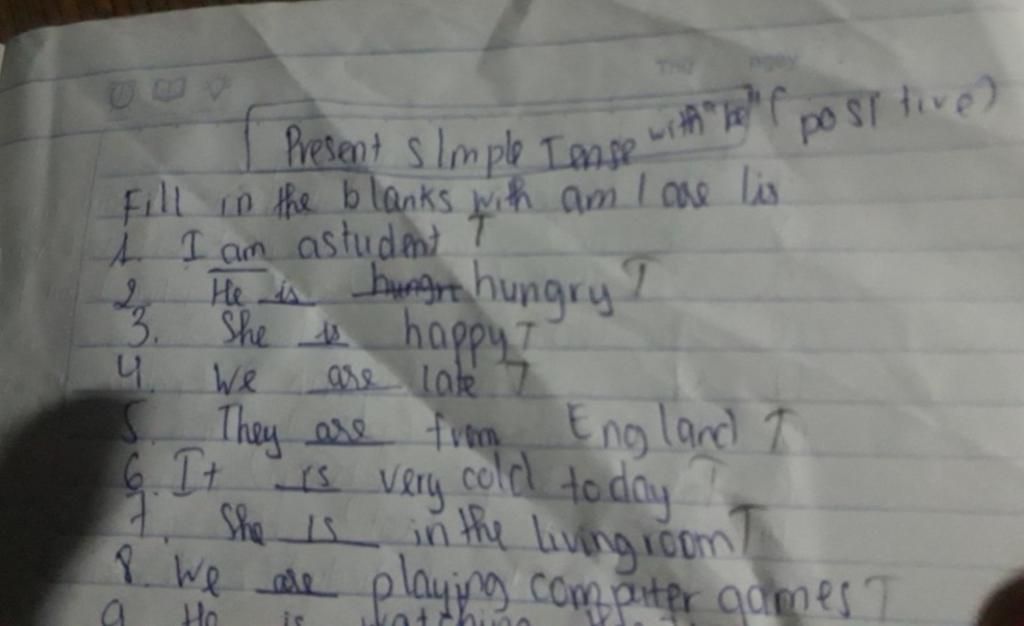 THỨ NGÀY
Present Simple Tense with "be" (positive)
Fill in the blanks with am / are / is
1. I am a student T
2. He is hungry T
3. She is happy T
4. We are late T
5. They are from England T
6. It is very cold today T
7. She is in the living room T
8. We are playing computer games T
9. He is watching